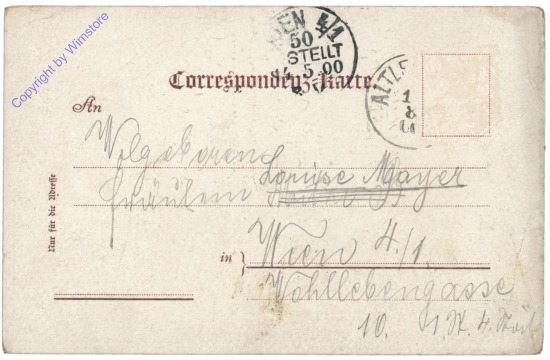 Copyright by Wimstore
IEN 4/1
50
STELLT
5.00
Correspondenz-Karte
ALTLE
1
8
An
Wolgeboren
Fräulein Louise Mayer
Nur für die Adresse
in Wien 4/1.
Wohllebengasse
10. 1 St. 4.